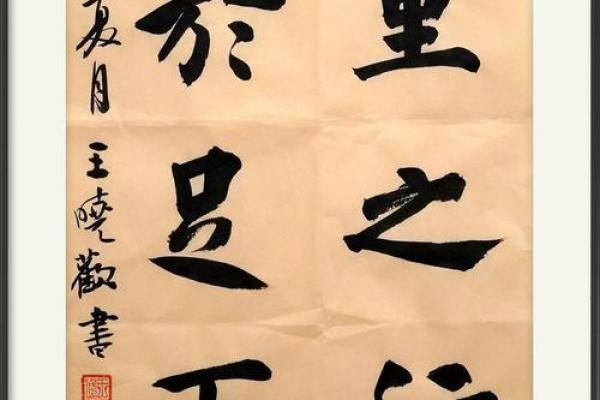 里之行
於足下
夏月王曉歡書